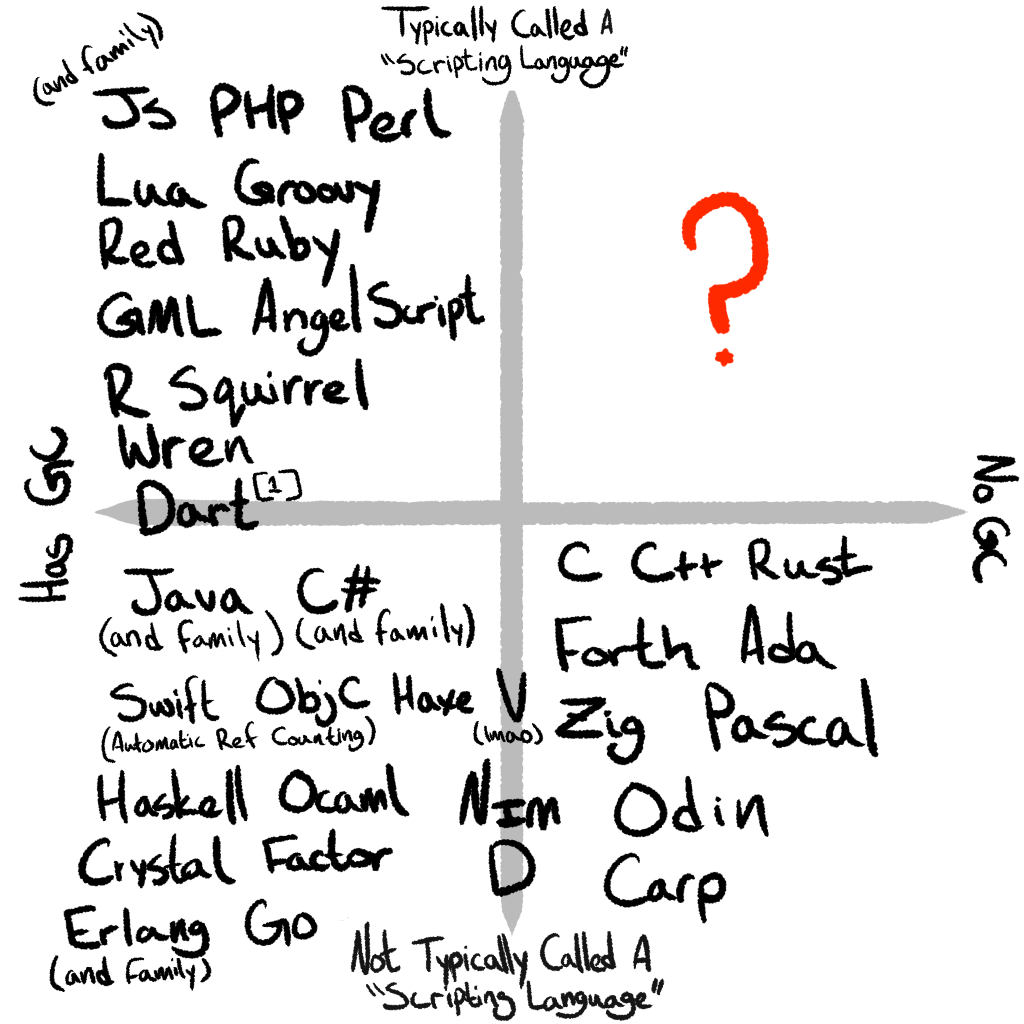 Typically Called A
"Scripting Language"
(and family)
Js PHP Perl
Lua Groovy
Red Ruby
GML AngelScript
R Squirrel
Wren
Dart [1]
?
Has GC
No GC
Java C#
(and family) (and family)
Swift ObjC Haxe V
(Automatic Ref Counting) (lmao)
Haskell Ocaml Nim
Crystal Factor D
Erlang Go
(and family)
C C++ Rust
Forth Ada
Zig Pascal
Odin
Carp
Not Typically Called A
"Scripting Language"